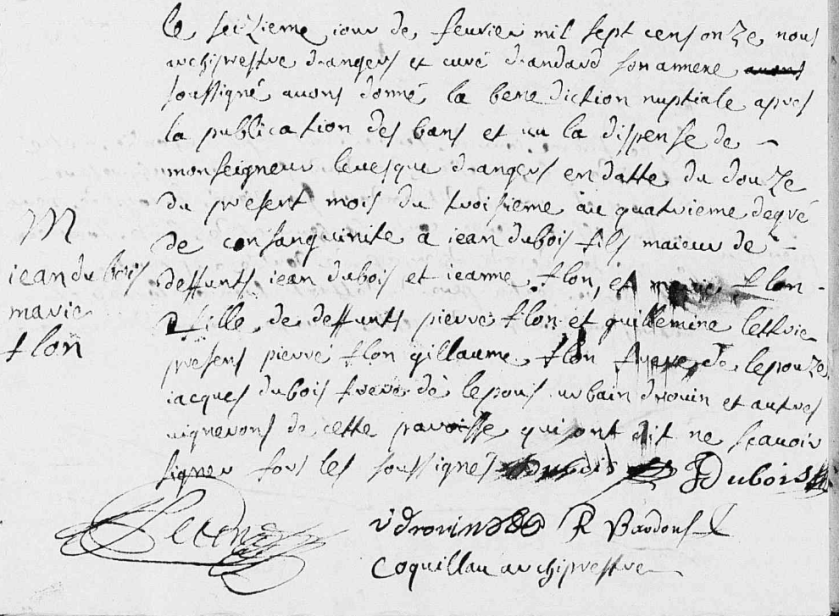 le seizieme iour de feurier mil sept cens onze nous
archiprestre d'angers et curé d'andard son annexe auons
soussigné auons donné la benediction nuptiale apres
la publication des bans et uu la dispense de
monseigneur leuesque d'angers en datte du douze
du present mois du troisieme au quatrieme degré
de consanguinite a iean dubois fils maieur de
deffunts iean dubois et ieanne flon, et marie flon
fille de deffunts pierre flon et guillemine
presens pierre flon gillaume flon frere de lespouze
iacques dubois frere de lespous urbain drouin et autres
uignerons de cette paroisse qui ont dit ne scauoir
signer fors les soussignés dubois J Dubois
M
iean dubois
marie
flon
v drouin R Bardoul
Coquillau archiprestre